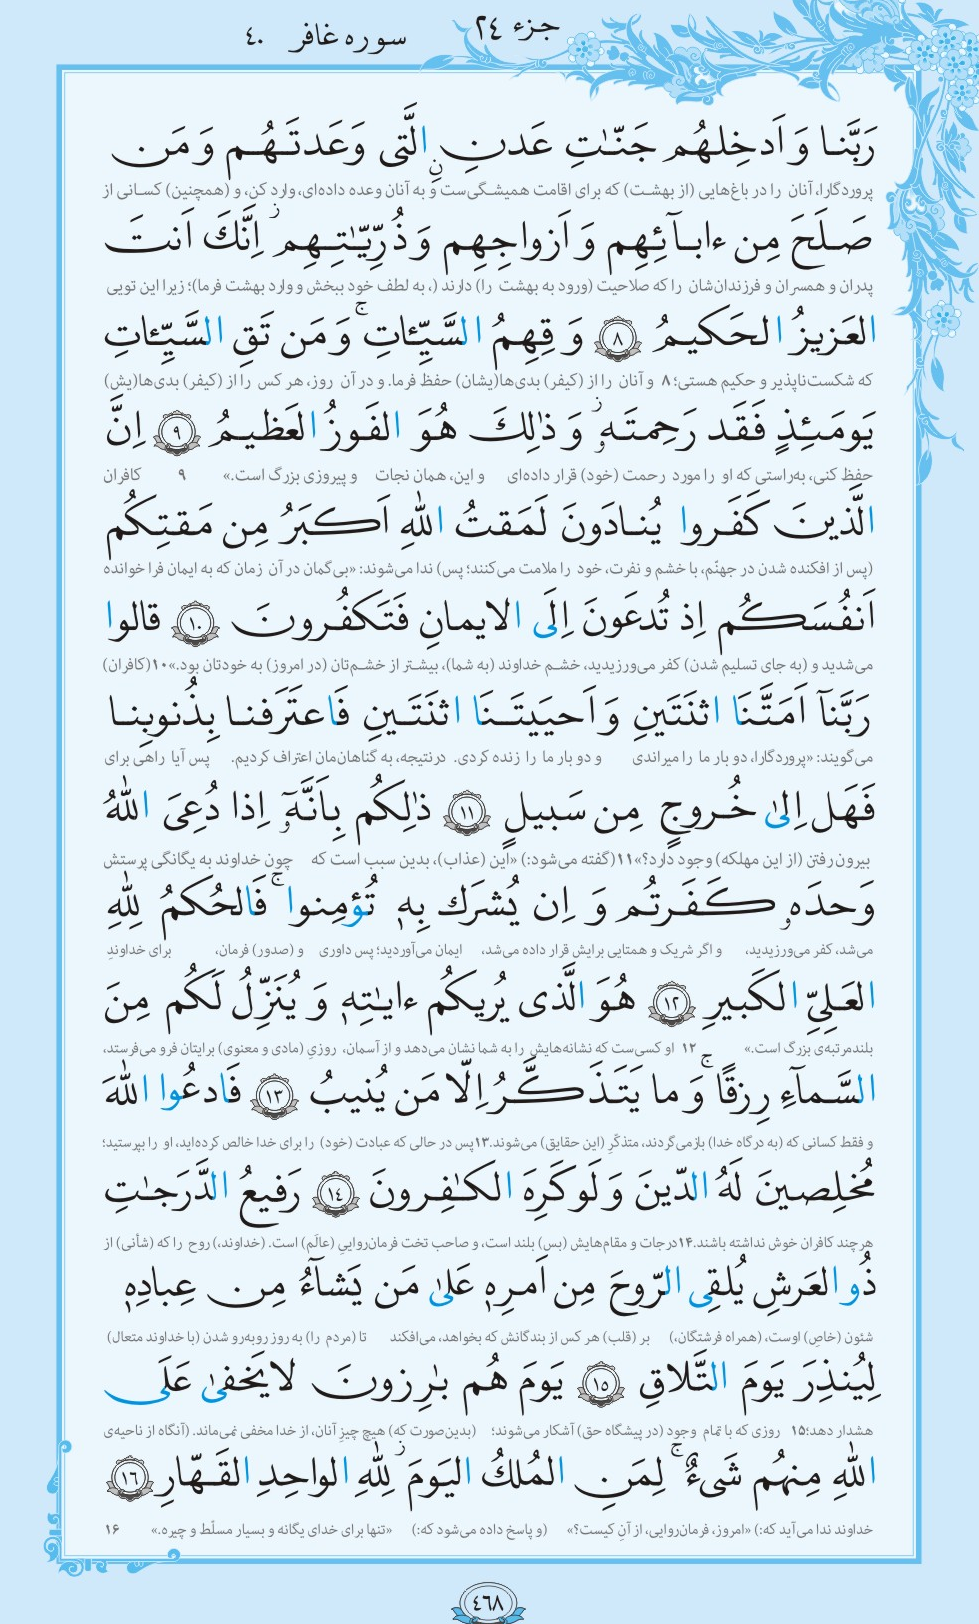 جزء ٢٤
سوره غافر ٤٠
رَبَّنا وَ اَدخِلهُم جَنّٰتِ عَدنٍ ِۨالَّتی وَعَدتَـهُـم وَ مَن
پروردگارا، آنان را در باغ‌هایی (از بهشت) که برای اقامت همیشگی‌ست و به آنان وعده داده‌ای، وارد کن، و (همچنین) کسانی از
صَـلَحَ مِن ءابـآئِهِم وَ اَزواجِهِم وَ ذُرِّیّٰتِـهِم ۚ اِنَّكَ اَنتَ
پدران و همسران و فرزندان‌شان را که صلاحیت (ورود به بهشت را) دارند (، به لطف خود ببخش و وارد بهشت فرما)؛ زیرا این تویی
العَزیزُ الحَكیمُ ٨ وَ قِهِمُ السَّیِّـٔاتِ ۚ وَ مَن تَقِ السَّیِّـٔاتِ
که شکست‌ناپذیر و حکیم هستی؛ ٨ و آنان را از (کیفر) بدی‌ها(یشان) حفظ فرما. و در آن روز، هر کس را از (کیفر) بدی‌ها(یش)
یَومَـئِـذٍ فَقَد رَحِمتَهٗ ۚ وَ ذٰلِكَ هُوَ الفَوزُ العَظیمُ ٩ اِنَّ
حفظ کنی، به‌راستی که او را مورد رحمت (خود) قرار داده‌ای و این، همان نجات و پیروزی بزرگ است.» ٩ کافران
الَّذینَ كَفَروا یُنـادَونَ لَمَقتُ اللّٰهِ اَكـبَرُ مِن مَقتِـكُم
(پس از افکنده شدن در جهنّم، با خشم و نفرت، خود را ملامت می‌کنند؛ پس) ندا می‌شوند: «بی‌گمان در آن زمان که به ایمان فرا خوانده
اَنفُسَـكُـم اِذ تُدعَونَ اِلَی الایمانِ فَتَكفُـرونَ ١٠ قالوا
می‌شدید و (به جای تسلیم شدن) کفر می‌ورزیدید، خشم خداوند (به شما)، بیشتر از خشم‌تان (در امروز) به خودتان بود.» ١٠ (کافران)
رَبَّنآ اَمَتَّنَا اثنَتَینِ وَ اَحیَیتَـنَا اثنَتَـینِ فَاعتَرَفنـا بِذُنوبِنـا
می‌گویند: «پروردگارا، دو بار ما را میراندی و دو بار ما را زنده کردی. درنتیجه، به گناهان‌مان اعتراف کردیم. پس آیا راهی برای
فَهَل اِلیٰ خُـروجٍ مِن سَبیلٍ ١١ ذٰلِكُم بِاَنَّهٗٓ اِذا دُعِیَ اللّٰهُ
بیرون رفتن (از این مهلکه) وجود دارد؟» ١١ (گفته می‌شود:) «این (عذاب)، بدین سبب است که چون خداوند به یگانگی پرستش
وَحدَهٗ كَـفَـرتُم وَ اِن یُشرَك بِهٖ تُؤمِنوا ۚ فَالحُكمُ لِلّٰهِ
می‌شد، کفر می‌ورزیدید، و اگر شریک و همتایی برایش قرار داده می‌شد، ایمان می‌آوردید؛ پس داوری و (صدور) فرمان، برای خداوندِ
العَـلِیِّ الكَبیرِ ١٢ هُوَ الَّذی یُریكُم ءایـٰتِهٖ وَ یُنَزِّلُ لَكُم مِنَ
بلندمرتبه‌ی بزرگ است.» ١٢ او کسی‌ست که نشانه‌هایش را به شما نشان می‌دهد و از آسمان، روزیِ (مادی و معنوی) برایتان فرو می‌فرستد،
السَّمآءِ رِزقًا ۚ وَ ما یَتَذَكَّـرُ اِلّا مَن یُنیبُ ١٣ فَادعُوا اللّٰهَ
و فقط کسانی که (به درگاه خدا) بازمی‌گردند، متذکّر (این حقایق) می‌شوند. ١٣ پس در حالی که عبادت (خود) را برای خدا خالص کرده‌اید، او را بپرستید؛
مُخلِصینَ لَهُ الدّینَ وَ لَو كَرِهَ الكـٰفِـرونَ ١٤ رَفیعُ الدَّرَجـٰتِ
هرچند کافران خوش نداشته باشند. ١٤ درجات و مقام‌هایش (بس) بلند است، و صاحب تخت فرمان‌رواییِ (عالَم) است. (خداوند،) روح را که (شأنی) از
ذُو العَرشِ یُلقِی الرّوحَ مِن اَمـرِهٖ عَلیٰ مَن یَشآءُ مِن عِبادِهٖ
شئون (خاصِ) اوست، (همراه فرشتگان،) بر (قلب) هر کس از بندگانش که بخواهد، می‌افکند تا (مردم را) به روز روبه‌رو شدن (با خداوند متعال)
لِیُنذِرَ یَومَ التَّلاقِ ١٥ یَومَ هُم بـٰرِزونَ لا یَخفیٰ عَلَی
هشدار دهد؛ ١٥ روزی که با تمام وجود (در پیشگاه حق) آشکار می‌شوند؛ (بدین‌صورت که) هیچ چیزِ آنان، از خدا مخفی نمی‌ماند. (آنگاه از ناحیه‌ی
اللّٰهِ مِنهُم شَیءٌ ۚ لِمَنِ المُلكُ الیَومَ ۖ لِلّٰهِ الواحِدِ القَـهّارِ ١٦
خداوند ندا می‌آید که:) «امروز، فرمان‌روایی، از آنِ کیست؟» (و پاسخ داده می‌شود که:) «تنها برای خدای یگانه و بسیار مسلّط و چیره.» ١٦
٤٦٨